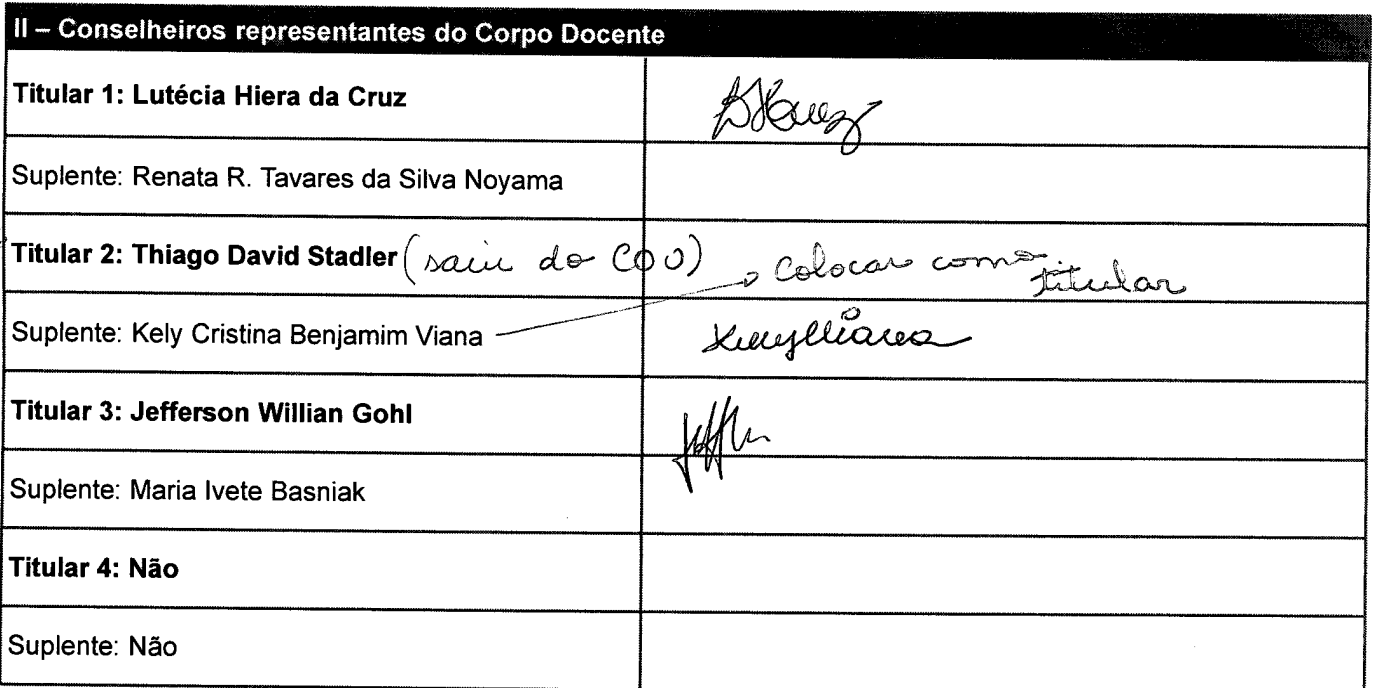 II – Conselheiros representantes do Corpo Docente
Titular 1: Lutécia Hiera da Cruz
Suplente: Renata R. Tavares da Silva Noyama
Titular 2: Thiago David Stadler (saiu do COU) Colocar como titular
Suplente: Kely Cristina Benjamim Viana
Titular 3: Jefferson Willian Gohl
Suplente: Maria Ivete Basniak
Titular 4: Não
Suplente: Não